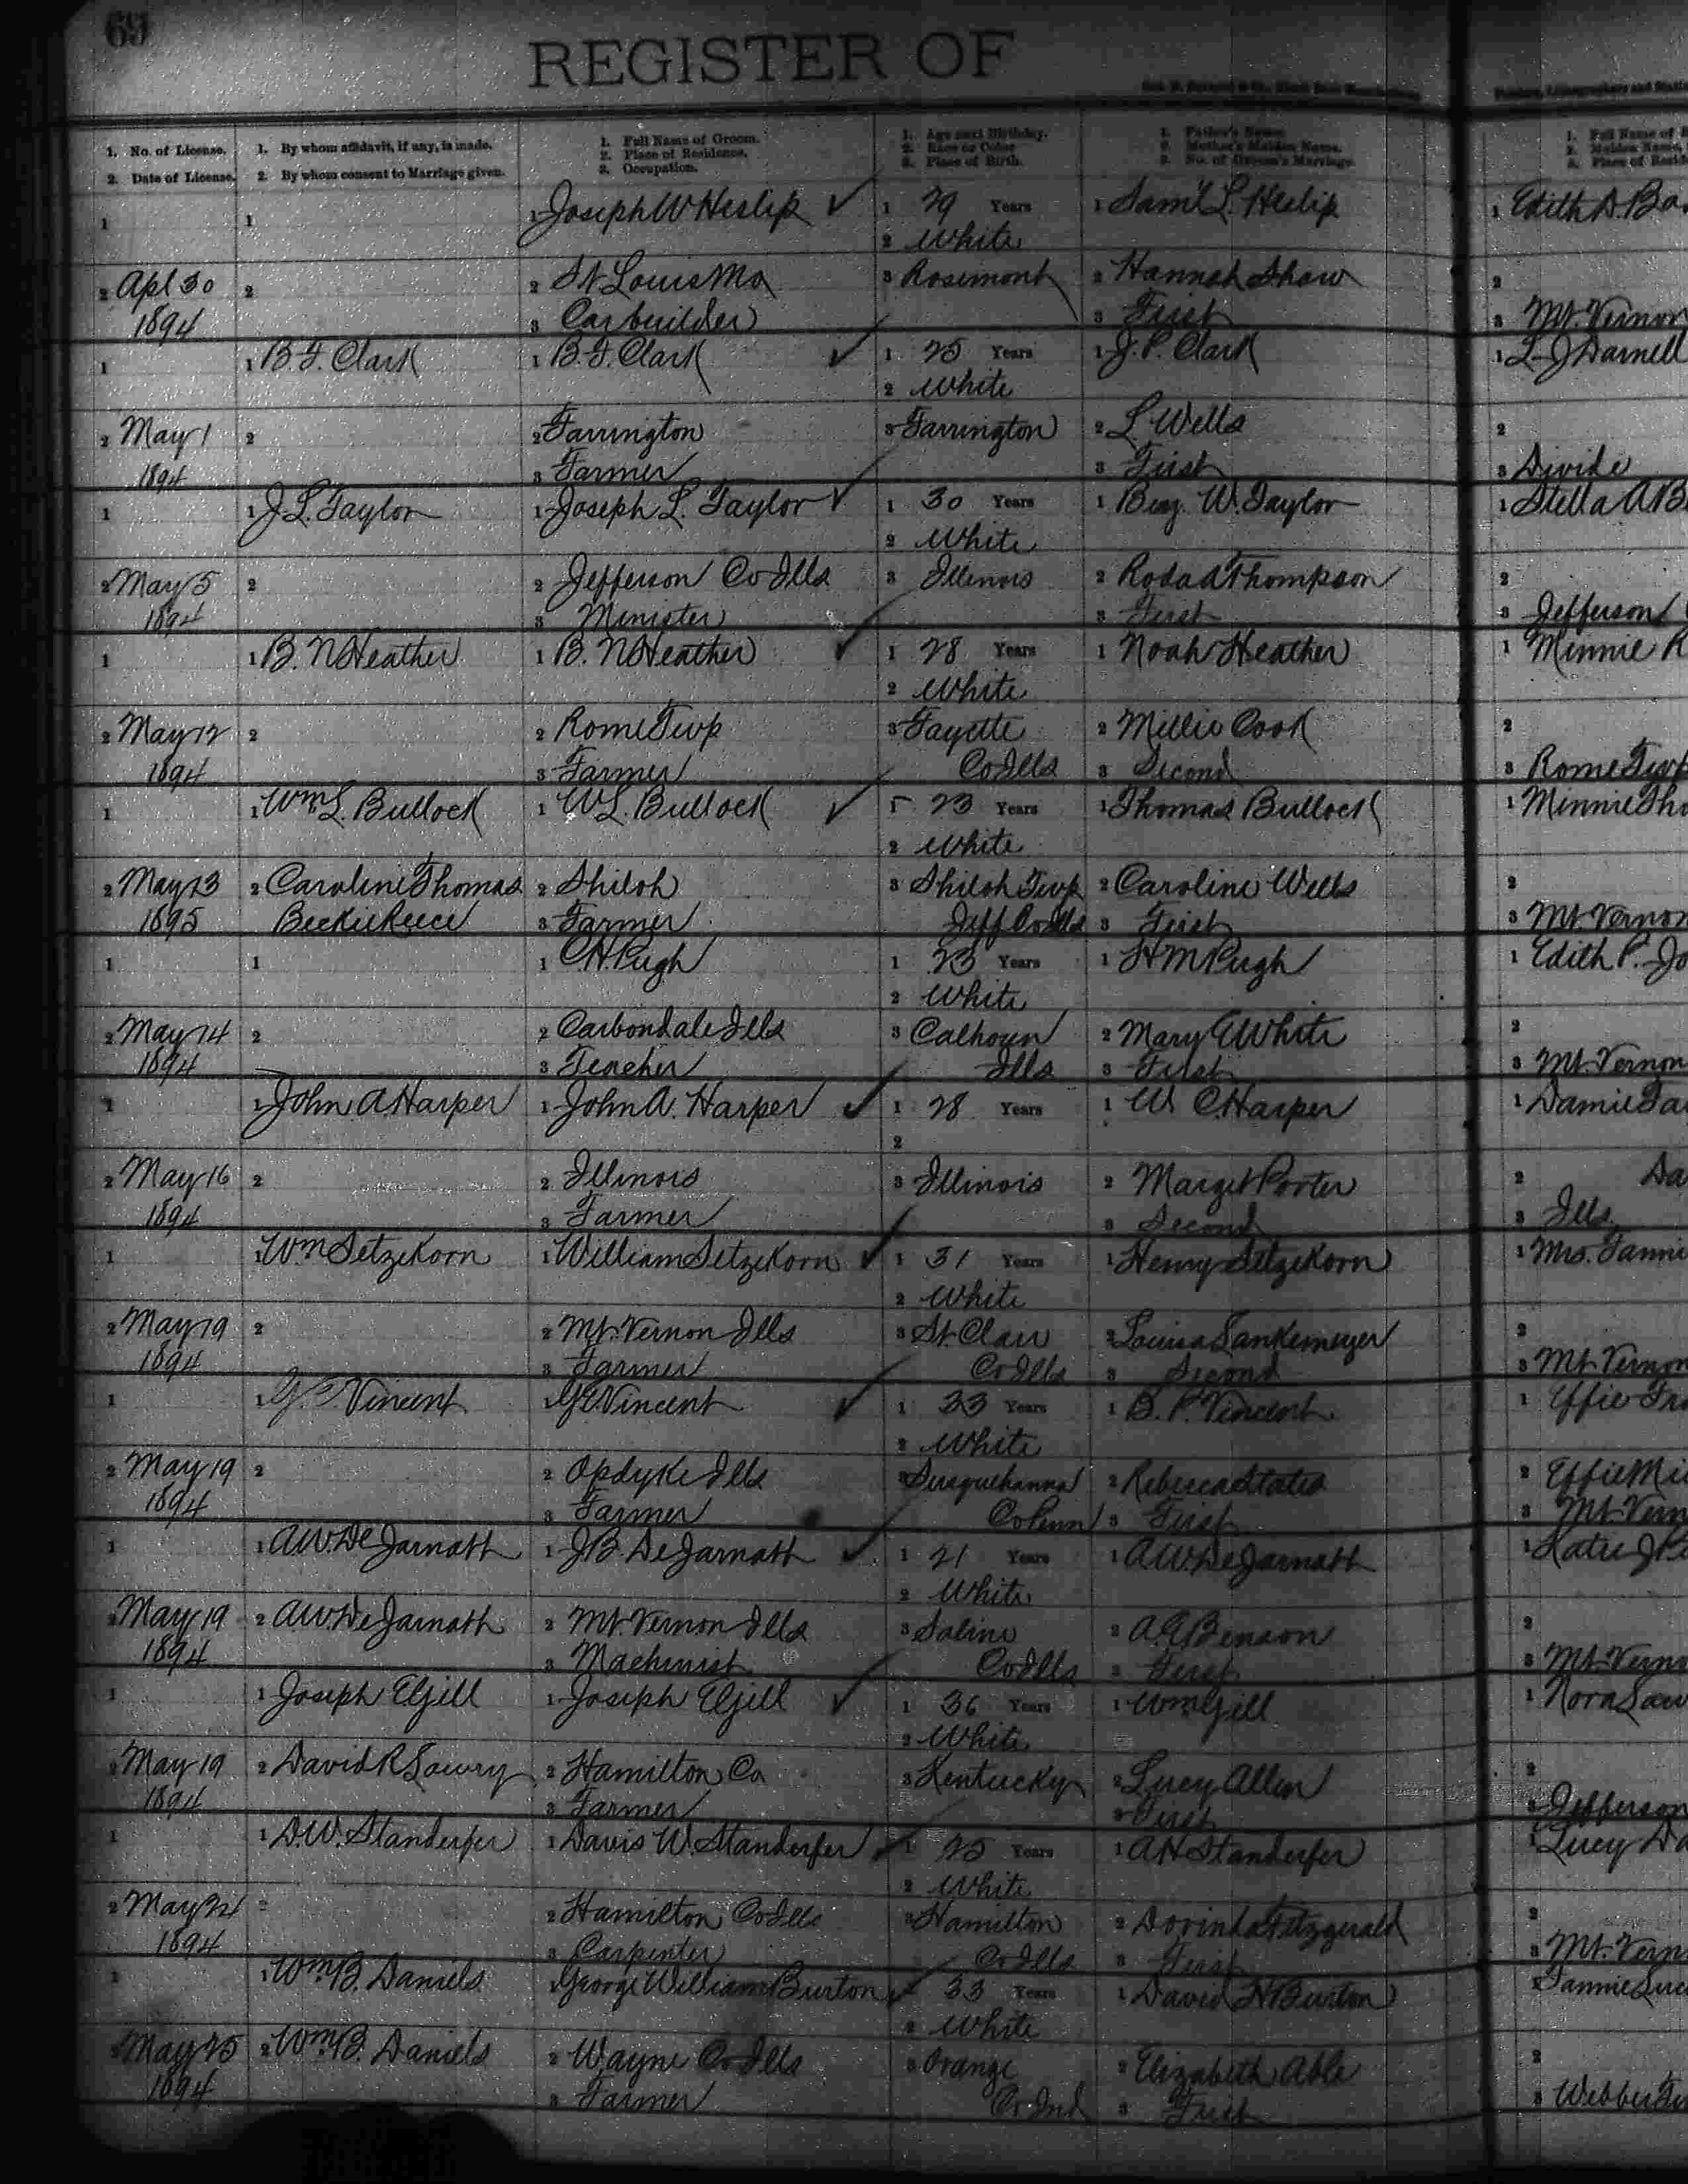 69
REGISTER OF
1. No. of License.
2. Date of License.
1. By whom affidavit, if any, is made.
2. By whom consent to Marriage given.
1. Full Name of Groom.
2. Place of Residence.
3. Occupation.
1. Age next Birthday.
2. Race or Color
3. Place of Birth.
1. Father's Name.
2. Mother's Maiden Name.
3. No. of Groom's Marriage.
1. Full Name of
2. Maiden Name,
3. Place of Resid
1 1 1 Joseph W Heslip ✓ 1 29 Years 1 Sam'l L. Heslip 1 Edith A. Ba
2 White
2 Apl 30 2 2 St Louis Mo 3 Rosemont 2 Hannah Shaw 2
1894 3 Carbuilder 3 First 3 Mt. Vernon
1 1 B. F. Clark 1 B. F. Clark ✓ 1 25 Years 1 J. P. Clark 1 L J Darnell
2 White
2 May 1 2 2 Farrington 3 Farrington 2 L Wells 2
1894 3 Farmer 3 First 3 Divide
1 1 J L. Taylor 1 Joseph L. Taylor ✓ 1 30 Years 1 Benj. W. Taylor 1 Stella A B
2 White
2 May 5 2 2 Jefferson Co Ills 3 Illinois 2 Roda A Thompson 2
1894 3 Minister 3 First 3 Jefferson
1 1 B. N Heather 1 B. N Heather ✓ 1 28 Years 1 Noah Heather 1 Minnie R
2 White
2 May 12 2 2 Rome Twp 3 Fayette 2 Millie Cook 2
1894 3 Farmer Co Ills 3 Second 3 Rome Twp
1 1 Wm L. Bullock 1 W L. Bullock ✓ 1 23 Years 1 Thomas Bullock 1 Minnie Tho
2 White
2 May 13 2 Caroline Thomas 2 Shiloh 3 Shiloh Twp 2 Caroline Wells 2
1895 Beckie Reece 3 Farmer Jeff Co Ills 3 First 3 Mt. Vernon
1 1 1 C H. Pugh 1 23 Years 1 H M Pugh 1 Edith P. Jo
2 White
2 May 14 2 2 Carbondale Ills 3 Calhoun 2 Mary E White 2
1894 3 Teacher Ills 3 First 3 Mt. Vernon
1 1 John A Harper 1 John A. Harper ✓ 1 28 Years 1 W C Harper 1 Damie Ta
2
2 May 16 2 2 Illinois 3 Illinois 2 Marget Porter 2 Da
1894 3 Farmer 3 Second 3 Ills
1 1 Wm Setzekorn 1 William Setzekorn ✓ 1 31 Years 1 Henry Setzekorn 1 Mrs. Fanni
2 White
2 May 19 2 2 Mt. Vernon Ills 3 St. Clair 2 Louisa Lankemeyer 2
1894 3 Farmer Co Ills 3 Second 3 Mt Vernon
1 1 G. E. Vincent 1 G E Vincent ✓ 1 33 Years 1 B. P. Vincent 1 Effie Fra
2 White
2 May 19 2 2 Opdyke Ills 3 Susquehanna 2 Rebecca States 2 Effie Mi
1894 3 Farmer Co Penn 3 First 3 Mt Vern
1 1 A W. De Jarnath 1 J B. De Jarnath ✓ 1 21 Years 1 A W. De Jarnath 1 Katie J
2 White
2 May 19 2 A W. De Jarnath 2 Mt. Vernon Ills 3 Saline 2 A. E Benson 2
1894 3 Machinist Co Ills 3 First 3 Mt. Verno
1 1 Joseph E Gill 1 Joseph E Gill ✓ 1 36 Years 1 Wm Gill 1 Nora Low
2 White
2 May 19 2 David R Lowry 2 Hamilton Co 3 Kentucky 2 Lucy Allen 2
1894 3 Farmer 3 First 3 Jefferson
1 1 D. W. Standerfer 1 Davis W. Standerfer ✓ 1 25 Years 1 A H Standerfer 1 Lucy Da
2 White
2 May 21 2 2 Hamilton Co Ills 3 Hamilton 2 Dorinda Fitzgerald 2
1894 3 Carpenter Co Ills 3 First 3 Mt. Vern
1 1 Wm B. Daniels 1 George William Burton ✓ 1 33 Years 1 David H Burton 1 Fannie Luc
2 White
2 May 25 2 Wm B. Daniels 2 Wayne Co Ills 3 Orange 2 Elizabeth Able 2
1894 3 Farmer Co Ind 3 First 3 Webber